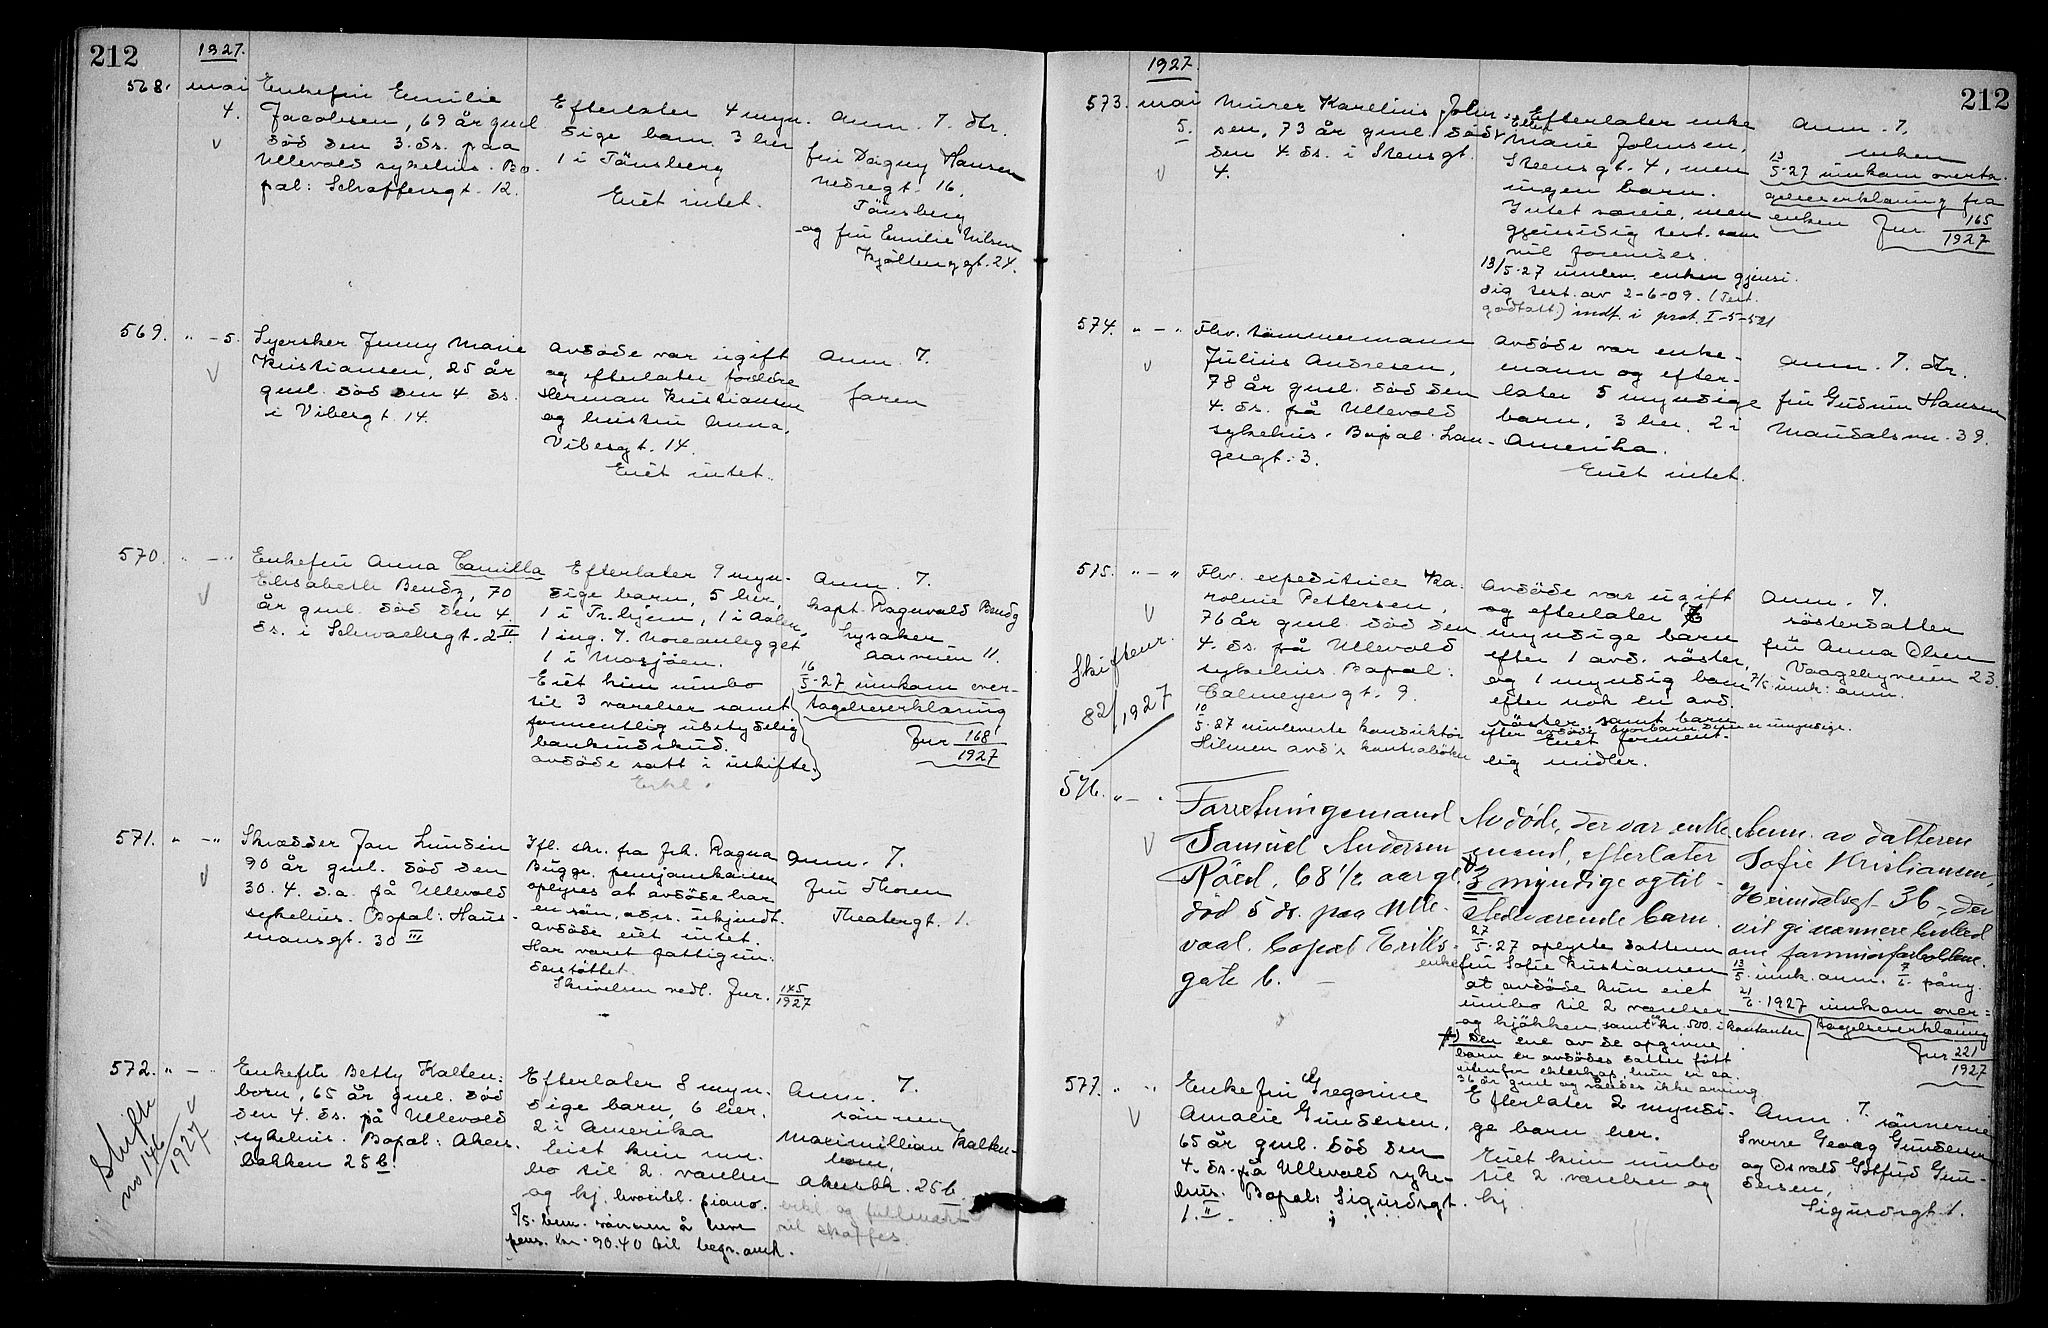 212
1927.
568. mai 4.
Enkefru Emilie
Jacobsen, 69 år gml.
død den 3. ds. paa
Ullevold sykehus. Bo-
pæl: Schaffersgt. 12.
Efterlater 4 myn-
dige barn. 3 her
1 i Tønsberg
Eiet intet.
Anm. 7. dtr.
fru Dagny Hansen
Nedregt. 16,
Tønsberg
og fru Emilie Nilsen
569. " - 5.
Syerske Jenny Marie
Kristiansen, 25 år
gml. død den 4 ds.
i Vibesgt. 14.
Avdøde var ugift
og efterlater foreldre
Herman Kristiansen
og hustru Anna,
Vibesgt. 14.
Eiet intet.
Anm. 7.
faren
570. " - "
Enkefru Anna Camilla
Elisabeth Bendz, 70
år gml. død den 4.
ds. i Schwachsgt. 2 II
Efterlater 9 myn-
dige barn, 5 her,
1 i Tr.hjem, 1 i Aaler,
1 ing. 7. Noreanlegget
1 i Mosjøen.
Eiet kun innbo
til 3 værelser samt
formentlig ubetydelig
bankindskud.
avdøde satt i uskifte.
Erkl.
Anm. 7.
kapt. Ragnvald Bendz
Lysaker
Aasveien 11.
16/5-27 innkom over-
tagelseserklæring
Jnr 168/1927
571. " - "
Skrædder Jan Lundin
90 år gml. død den
30.4. d.a. på Ullevold
sykehus. Bopæl: Haus-
mansgt. 30 III
Ifl. skr. fra frk. Ragna
Bugge, pensjonskassen
oplyses at avdøde har
en søn, adr. ukjendt.
Avdøde eiet intet.
Har været fattigun-
derstøttet.
Skrivelsen vedl. Jnr. 145/1927
Anm. 7.
fru Thoren
Theatergt. 1.
572. " - "
Skifte
no 146
1927
Enkefru Betty Kalten-
born, 65 år gml. død
den 4. ds. på Ullevold
sykehus. Bopæl: Akers-
bakken 25 b.
Efterlater 8 myn-
dige barn, 6 her.
2 i Amerika
Eiet kun inn-
bo til 2 værelser
og kj. hvoribl. piano.
5/5. bem. sønnen å heve
pens. kr. 90.40 til begr. omk.
Anm. 7.
sønnen
Maximillian Kalten-
born,
Akersbk. 25 b.
erkl. og fullmakt
vil skaffes.
212
1927.
573. mai 5.
Murer Karelius John-
sen, 73 år gml. død
den 4. ds. i Stensgt.
4.
Efterlater enke
Ellen
Marie Johnsen,
Steensgt. 4, men
ingen barn.
Intet særeie, men
gjensidig test. som
vil forevises.
13/5-27 innlev. enken gjensi-
dig test. av 2-6-09. (Test.
godtatt) indf. i prot. I-5-521
Anm. 7.
enken
13/5-27 innkom overta-
gelseserklæring fra
enken Jnr 165/1927
574. " - "
Fhv. tømmermann
Julius Andresen,
78 år gml. død den
4. ds. på Ullevold
sykehus. Bopæl. Lan-
gesgt. 3.
Avdøde var enke-
mann og efter-
later 5 myndige
barn, 3 her, 2 i
Amerika.
Eiet intet.
Anm. 7. dtr.
fru Gudrun Hansen
Maridalsvn. 39.
575. " - "
Skiftenr.
82/1927
Fhv. expeditrice Ka-
roline Pettersen,
76 år gml. død den
4. ds. på Ullevold
sykehus. Bopæl:
Calmeyersgt. 9.
10/5-27 innleverte konduktør
Hilmen avd's kontrabøker
Avdøde var ugift
og efterlater
myndige barn
efter 1 avd. søster,
og 1 myndig barn
efter nok en avd.
søster, samt barn
Eiet forment-
lig midler.
Anm. 7.
søsterdatter
fru Anna Olsen
Vaagebyveien 23.
7/5 innk. anm.
576. " - "
Forretningsmand
Samuel Andersen
Röed, 68 1/2 aar gl.
død 5 ds. paa Ulle-
vaal. bopæl Eriks-
gate 6.
Avdøde, der var enke-
mand, efterlater
3 myndige og til-
stedeværende barn.
27/5-27 oplyste datteren
enkefru Sofie Kristiansen
at avdøde kun eiet
innbo til 2 værelser
og kjøkken samt kr. 500. i kontanter
den ene av de opgivne
barn er avdødes datter født
utenfor ekteskap, hun er ca.
36 år gml og således ikke arving
Anm. av datteren
Sofie Kristiansen,
Heimdalsgt 36, der
vil gi nærmere beskjed
om formuesforholdene.
13/5. innk. anm. 7/6. påny.
21/6. 1927 innkom over-
tagelseserklæring
Jnr 221/1927
577. " - "
Enkefru Gregorine
Amalie Gundersen,
65 år gml. død den
4. ds. på Ullevold syke-
hus. Bopæl: Sigurdsgt.
1. II
Efterlater 2 myndi-
ge barn her.
Eiet kun innbo
til 2 værelser og
kj.
Anm. 7. sønnerne
Sverre Georg Gundersen
og Osvald Gotfred Gun-
dersen,
Sigurdsgt. 1.